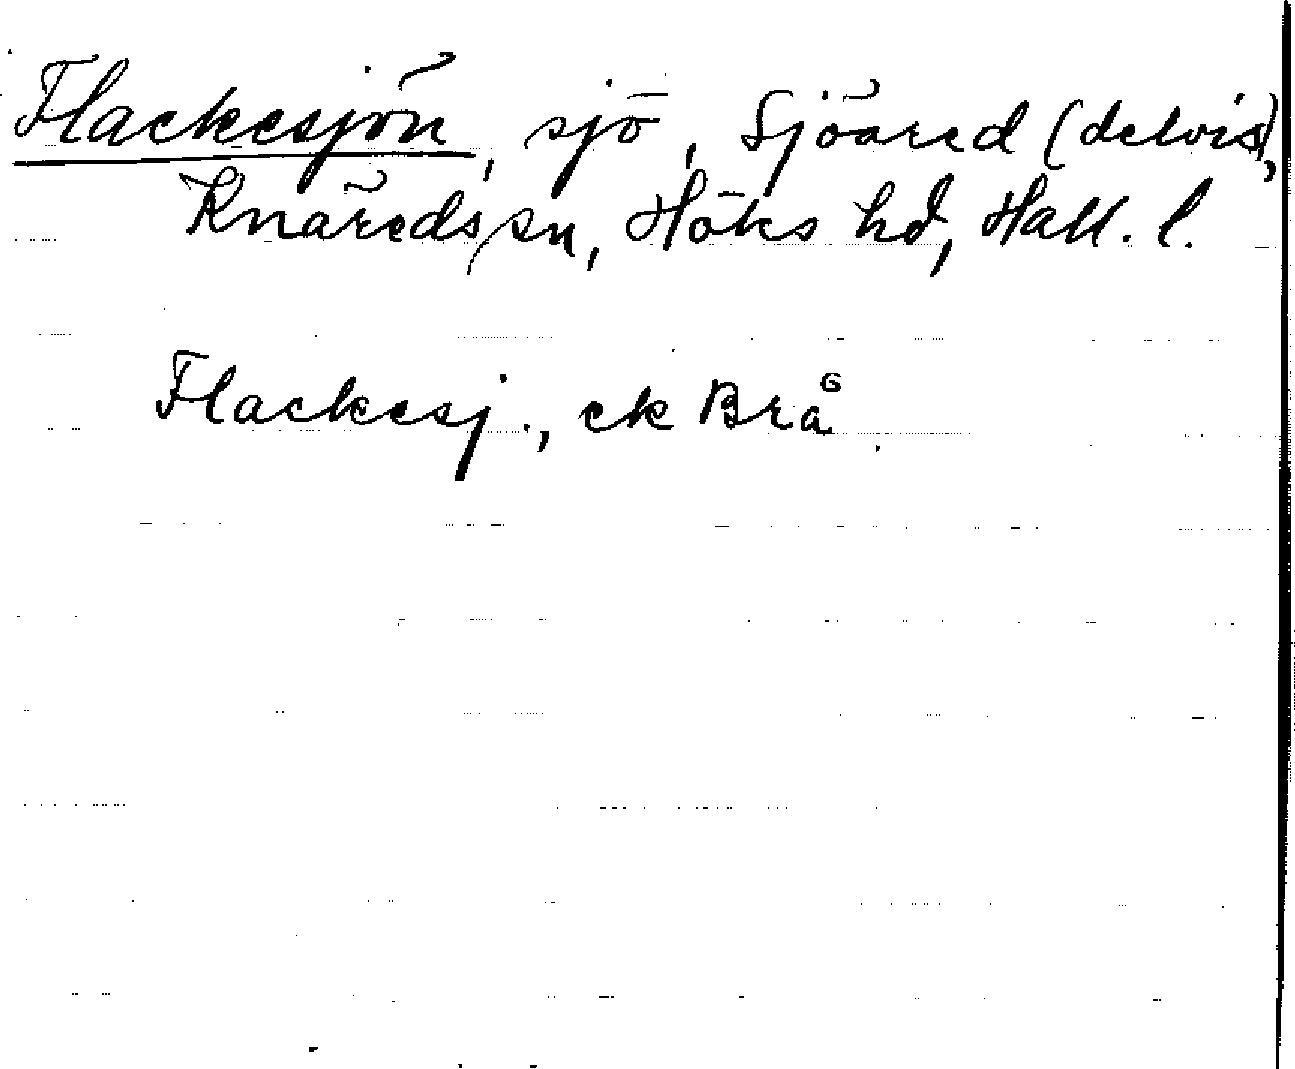 Flackesjön, sjö, Sjöared (delvis),
Knäreds sn, Höks hd, Hall. l.
Flackesj., ek Brå